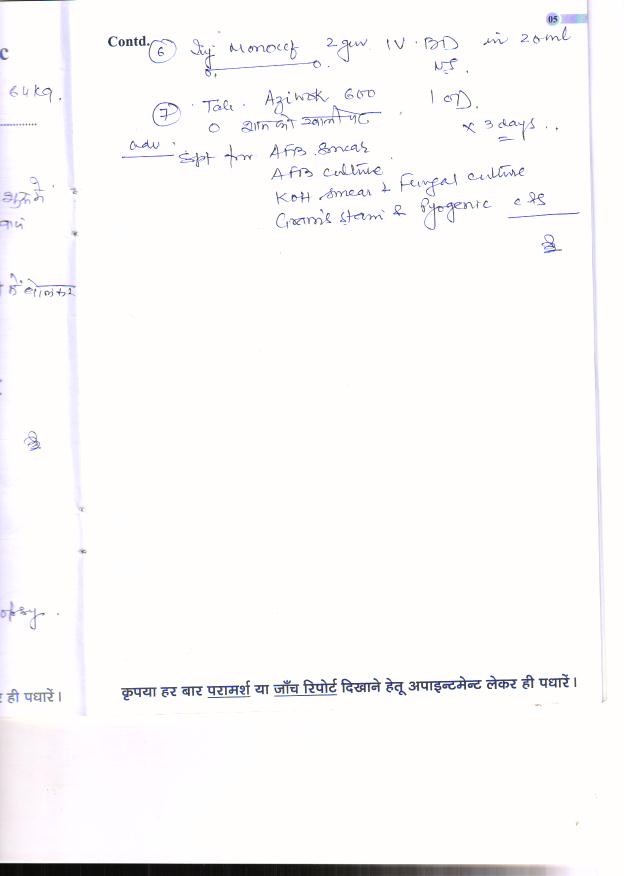 05
Contd. 6 Inj Monocef 2gm IV. BD in 20ml
N.S.
7 Tab. Aziwok 600 1 OD.
0 शाम को खाली पेट x 3 days ..
adv. Spt for AFB Smear
AFB culture
KOH smear & Fungal culture
Gram's stain & Pyogenic c/s
c
64 kg.
ही पधारें।
कृपया हर बार परामर्श या जाँच रिपोर्ट दिखाने हेतू अपाइन्टमेन्ट लेकर ही पधारें।